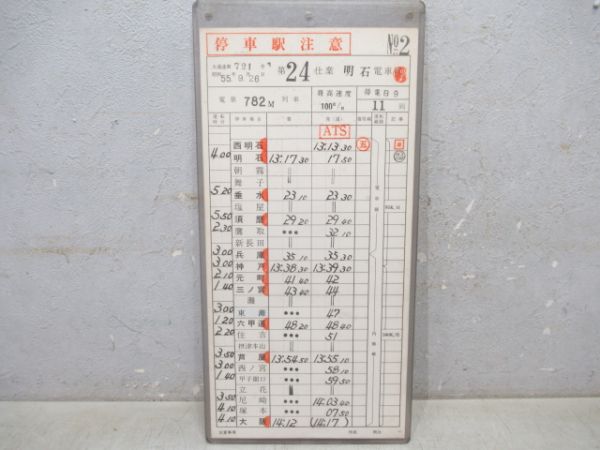 停車駅注意 No 2
721
55. 9.26 第24仕業 明石電車
電車 782M 列車 最高速度 100 停電目合 11両
ATS
西明石 13:13 30
4.00 明石 13:17 30 17 50
朝霧 ‖
舞子 ‖ ‖
5.20 垂水 23 10 23 30
塩屋 ‖ ‖
5.50 須磨 29 20 29 40
2.30 鷹取 ••• 32 10
新長田 ‖ ‖
3.00 兵庫 35 10 35 30
3.00 神戸 13:38 30 13:39 30
2.10 元町 41 40 42
1.40 三ノ宮 43 40 44
灘 ‖ ‖
3.00 東灘 ••• 47
1.20 六甲道 48 20 48 40
2.20 住吉 ••• 51
摂津本山 ‖ ‖
3.50 芦屋 13:54 50 13:55 10
3.00 西ノ宮 ••• 58 10
1.40 甲子園口 ••• 59 50
立花 ‖ ‖
3.50 尼崎 ••• 14:03 40
4.10 塚本 ••• 07 50
4.10 大阪 14:12 (14:17)